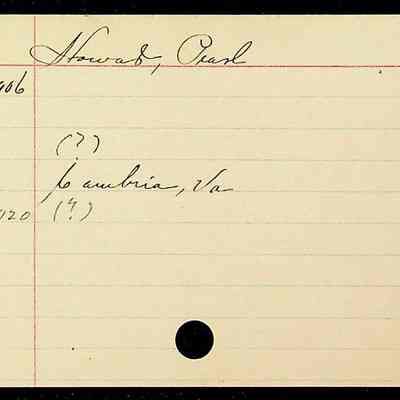 Howard, Pearl
906
(?)
Cambria, Va
920 (?)